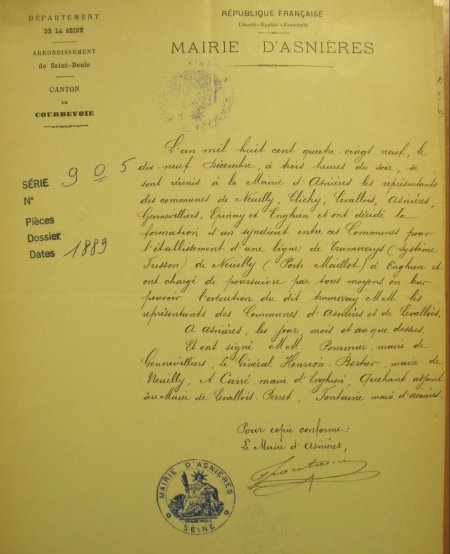 DÉPARTEMENT
DE LA SEINE
ARRONDISSEMENT
de Saint-Denis
CANTON
DE
COURBEVOIE
RÉPUBLIQUE FRANÇAISE
Liberté—Égalité—Fraternité
MAIRIE D'ASNIÈRES
SÉRIE 905
N°
Pièces
Dossier
Dates 1889
L'an mil huit cent quatre vingt neuf, le
dix neuf Décembre, à trois heures du soir, se
sont réunis à la Mairie d'Asnières les représentants
des communes de Neuilly, Clichy, Levallois, Asnières,
Gennevilliers, Epinay et Enghien et ont décidé la
formation d'un syndicat entre ces Communes pour
l'établissement d'une ligne de Tramways (Système
Tresson) de Neuilly (Porte-Maillot) à Enghien et
ont chargé de poursuivre par tous moyens en leur
pouvoir l'exécution du dit tramway M.M. les
représentants des Communes d'Asnières et de Levallois.
A Asnières, les jour, mois et an que dessus.
Et ont signé M.M. Pommier, maire de
Gennevilliers, le Général Henrion-Bertier, maire de
Neuilly, A Carré, maire d'Enghien, adjoint
au Maire de Levallois-Perret, Fontaine maire d'Asnières.
Pour copie conforme:
Le Maire d'Asnières,
Fontaine
MAIRIE D'ASNIÈRES
SEINE